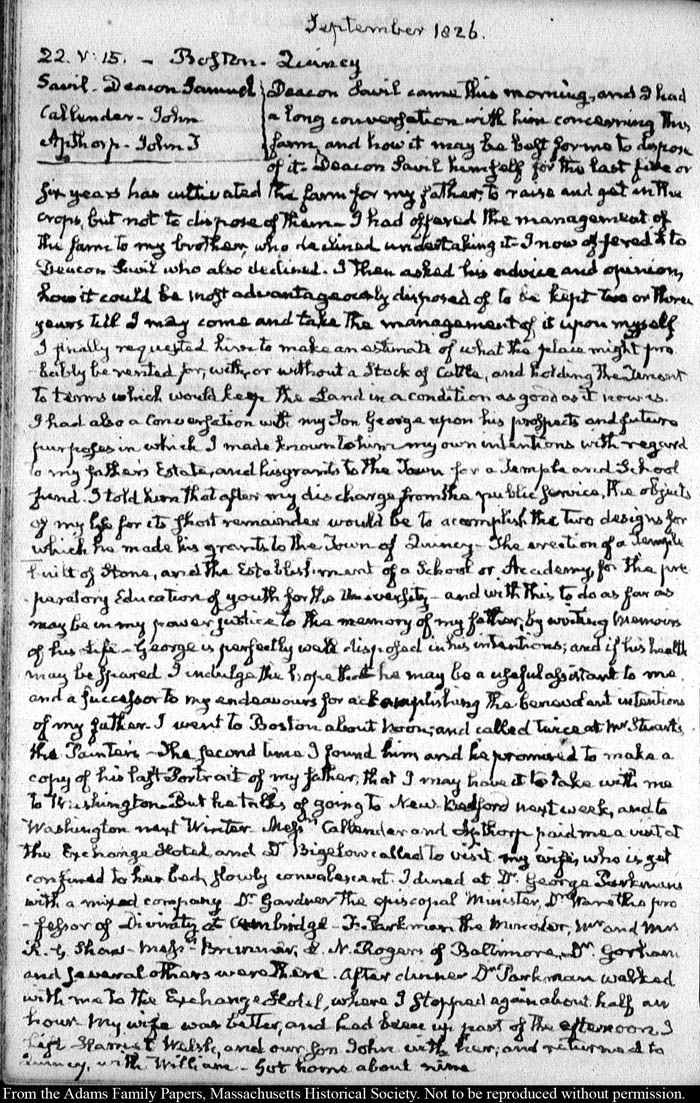 September 1826.
22. V: 15. – Boston. Quincy
Savil - Deacon Samuel
Callender - John
Apthorp - John T
Deacon Savil came this morning, and I had
a long conversation with him concerning this
farm, and how it may be best for me to dispose
of it. Deacon Savil himself for the last five or
six years has cultivated the farm for my father, to raise and get in the
crops, but not to dispose of them. I had offered the management of
the farm to my brother, who declined undertaking it. I now offered it to
Deacon Savil who also declined. I then asked his advice and opinion,
how it could be most advantageously disposed of to be kept two or three
years till I may come and take the management of it upon myself
I finally requested him to make an estimate of what the place might pro
-bably be rented for, with, or without a Stock of Cattle, and holding the tenant
to terms which would keep the Land in a condition as good as it now is.
I had also a Conversation with my Son George upon his prospects and future
purposes in which I made known to him my own intentions with regard
to my father's Estate, and his grants to the Town for a Temple and School
fund. I told him that after my discharge from the public service, the objects
of my life for its short remainder would be to accomplish the two designs for
which he made his grants to the Town of Quincy - The erection of a Temple
built of Stone, and the Establishment of a School or Academy, for the pre
-paratory Education of youth for the University - and with this to do as far as
may be in my power justice to the memory of my father, by writing Memoirs
of his Life - George is perfectly well disposed in his intentions; and if his health
may be spared I indulge the hope that he may be a useful assistant to me
and a successor to my endeavours for accomplishing the benevolent intentions
of my father. I went to Boston about noon; and called twice at Mr Stuart's,
the Painter - The second time I found him, and he promised to make a
copy of his last Portrait of my father, that I may have it to take with me
to Washington. But he talks of going to New-Bedford next week, and to
Washington next Winter. Messrs Callender and Apthorp paid me a visit at
the Exchange Hotel, and Dr Bigelow called to visit my wife, who is yet
confined to her bed, slowly convalescent. I dined at Dr George Parkman's
with a mixed company - Dr Gardner the episcopal Minister, Dr Ware the pro
-fessor of Divinity at Cambridge - F. Parkman the Minister, Mr and Mrs
R. G. Shaw - Messrs Brimmer, & N. Rogers of Baltimore, Dr Gorham
and several others were there. After dinner Dr Parkman walked
with me to the Exchange Hotel, where I stopped again about half an
hour. My wife was better, and had been up part of the afternoon. I
left Harriet Welsh, and our Son John with her; and returned to
Quincy, with William - Got home about nine
From the Adams Family Papers, Massachusetts Historical Society. Not to be reproduced without permission.